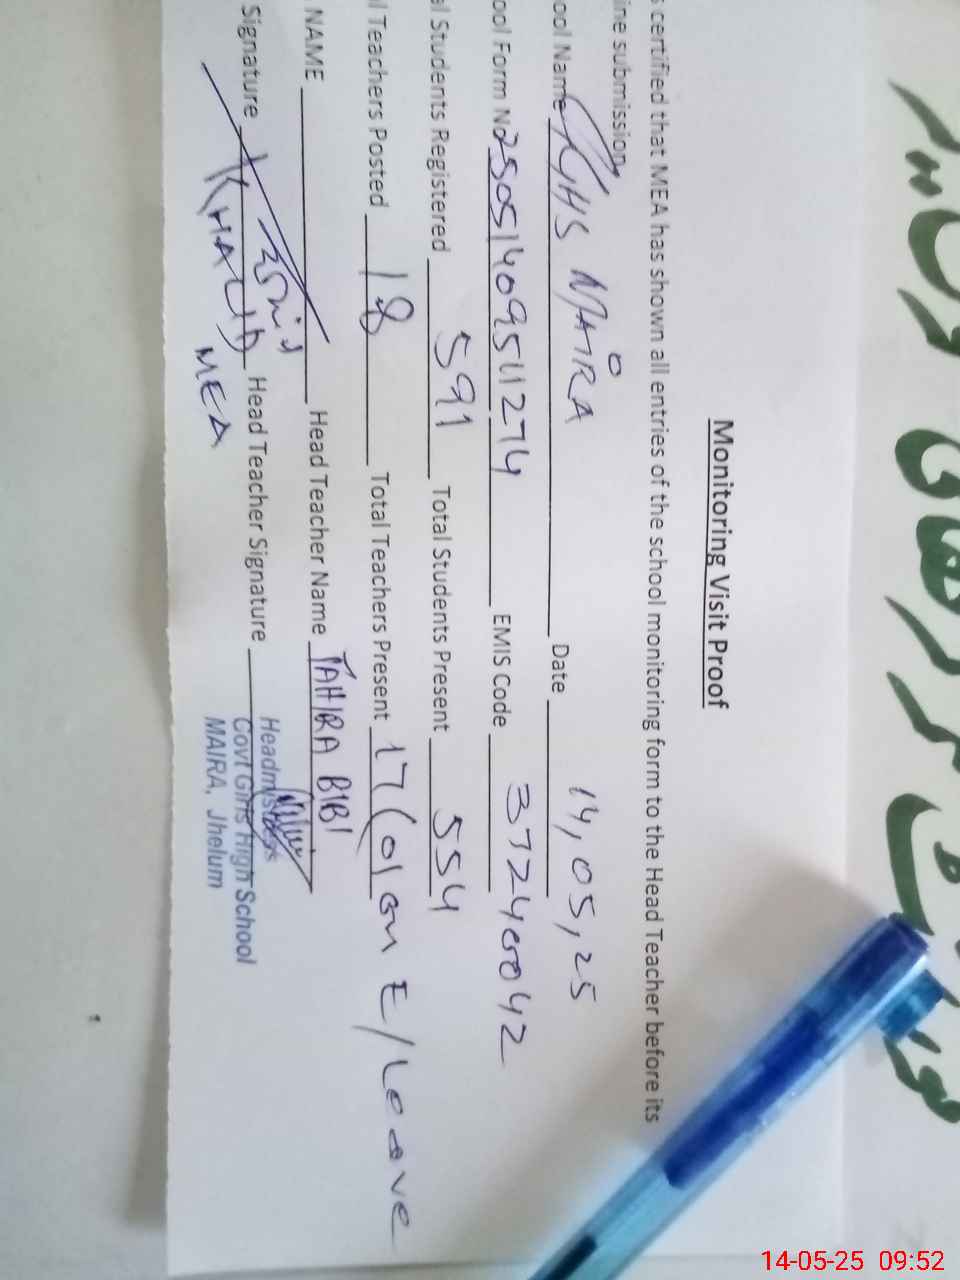 Monitoring Visit Proof
s certified that MEA has shown all entries of the school monitoring form to the Head Teacher before its
ine submission
ool Name GGHS MAIRA Date 14,05,25
ool Form No 25051409511274 EMIS Code 37240042
al Students Registered 591 Total Students Present 554
l Teachers Posted 18 Total Teachers Present 17 (01 on E/Leave
NAME Head Teacher Name TAHIRA BIBI
Signature Head Teacher Signature
MEA
Headmistress
Govt Girls High School
MAIRA, Jhelum
14-05-25 09:52